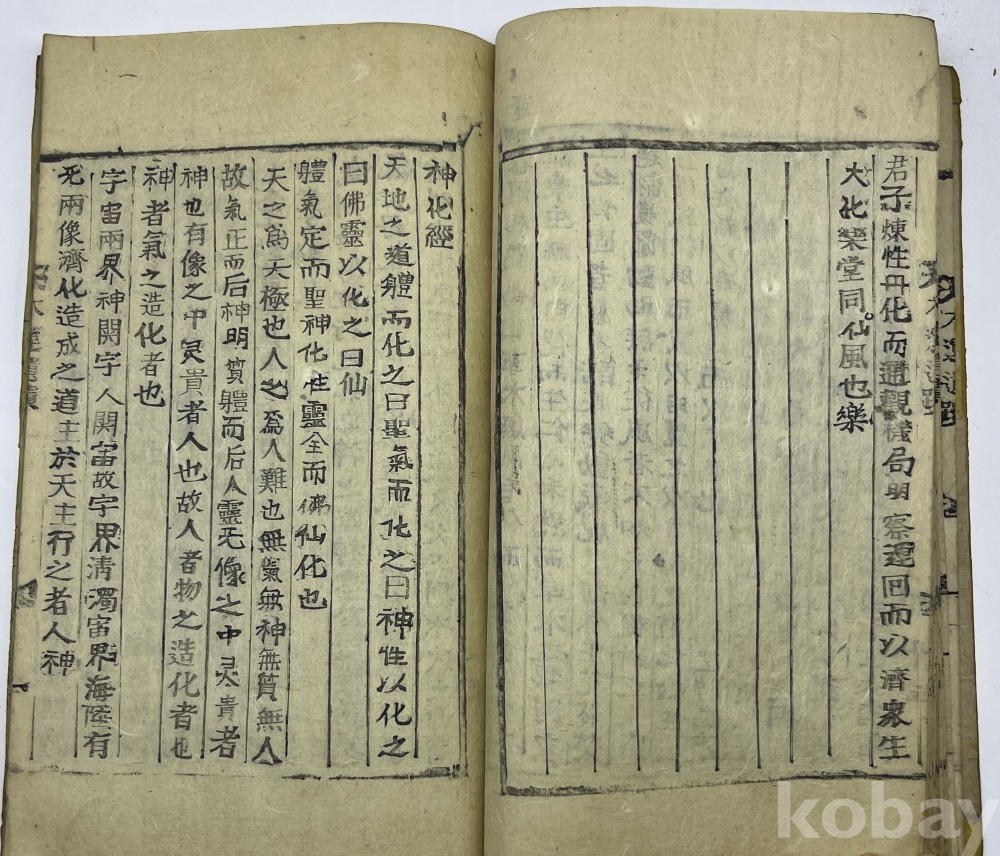 君子煉性丹化而通觀機局明察運回而以濟衆生
大化樂堂同仙風也樂
神化經
天地之道體而化之曰聖氣而化之曰神性以化之
曰佛靈以化之曰仙
體氣定而聖神化性靈全而佛仙化也
天之爲天極也人之爲人難也無氣無神無質無人
故氣正而后神明質體而后人靈无像之中灵貴者
神也有像之中灵貴者人也故人者物之造化者也
神者氣之造化者也
宇宙兩界神闕宇人闕宙故宇界淸濁宙界海陸有
无兩像濟化造成之道主於天主行之者人神
kobay